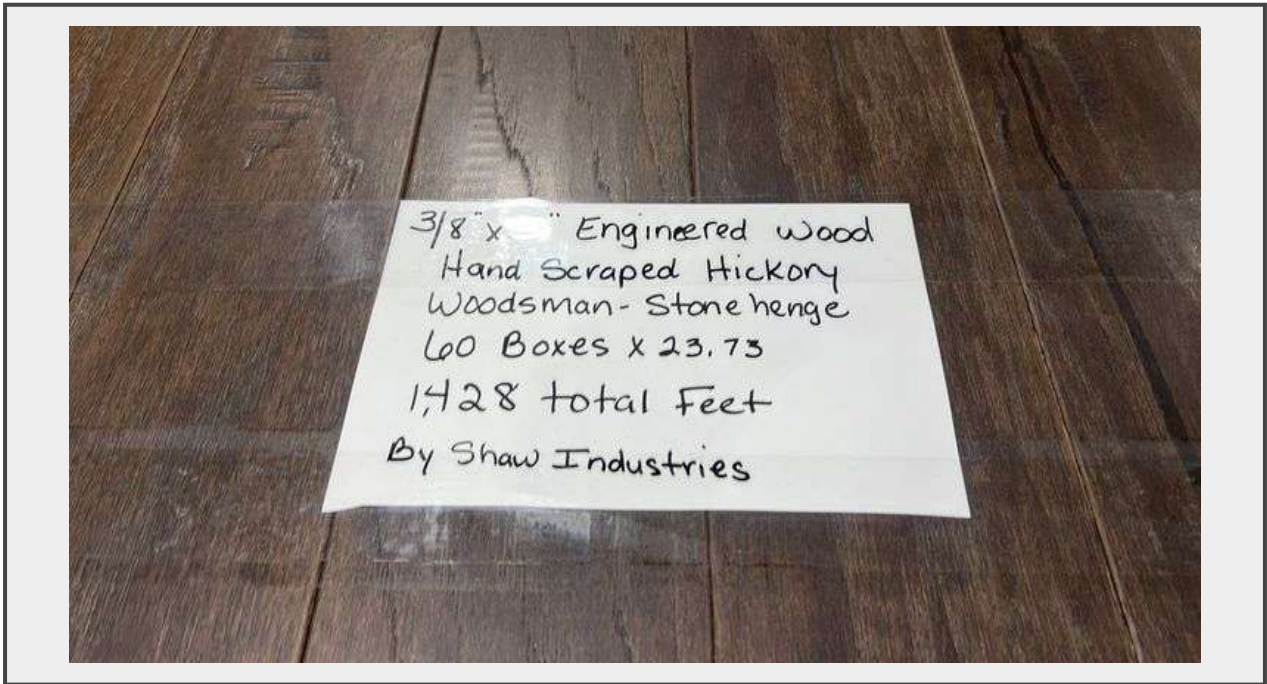 3/8" x " Engineered wood
Hand Scraped Hickory
Woodsman - Stonehenge
60 Boxes x 23.73
1,428 total Feet
By Shaw Industries